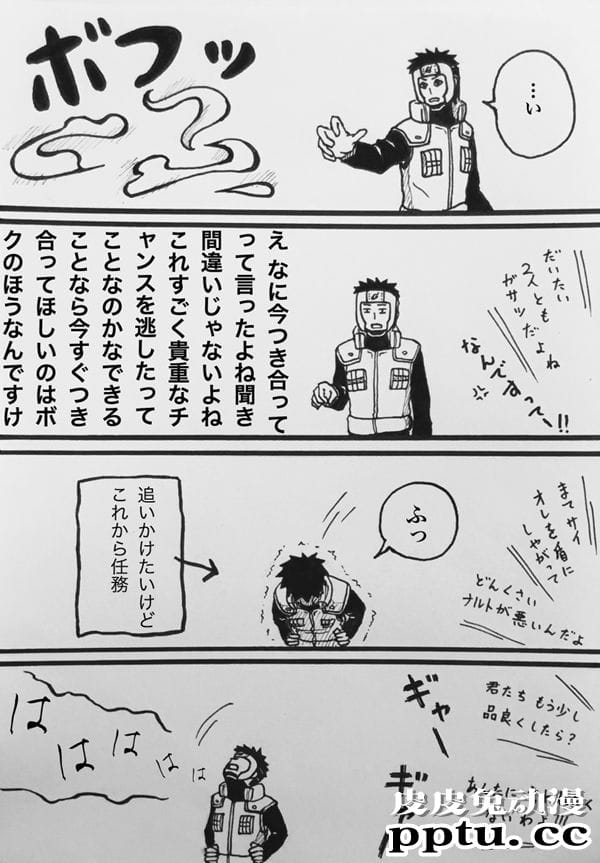 …い
ボフッ
だいたい
2人とも
ガサツだよね
なんですってー!!
え なに今つき合って
って言ったよね聞き
間違いじゃないよね
これすごく貴重なチ
ャンスを逃したって
ことなのかなできる
ことなら今すぐつき
合ってほしいのはボ
クのほうなんですけ
まてサイ
オレを盾に
しやがって
どんくさい
ナルトが悪いんだよ
ふっ
追いかけたいけど
これから任務
君たち もう少し
品良くしたら?
ギャー
ギャ
あんたに
ないわよ!!!
は
は
は
は
は
は
皮皮兔动漫
pptu.cc